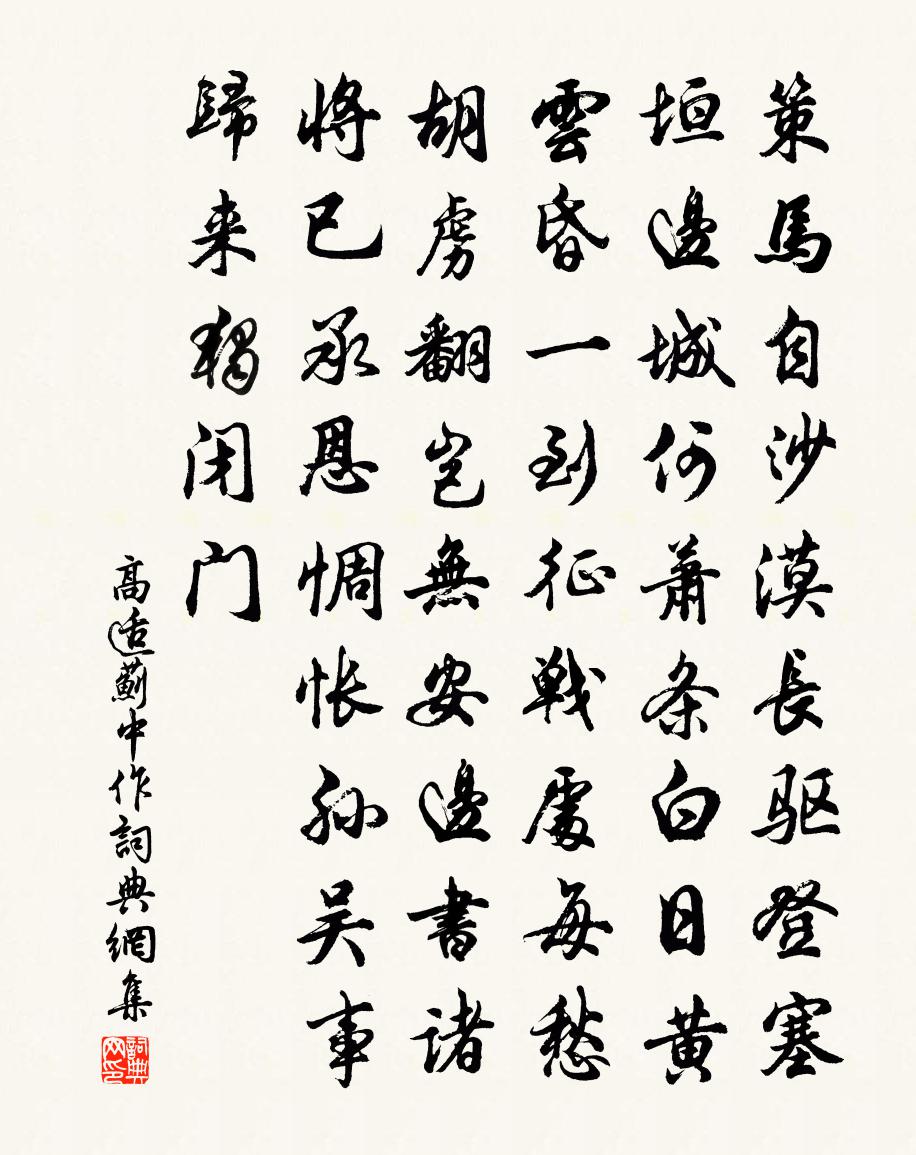 策馬自沙漠長驱登塞
垣邊城何蕭条白日黄
雲昏一到征戰處每愁
胡虜翻豈無安邊書诸
将已承恩惆怅孙吴事
歸来独闭门
高适薊中作詞典網集
詞典网印